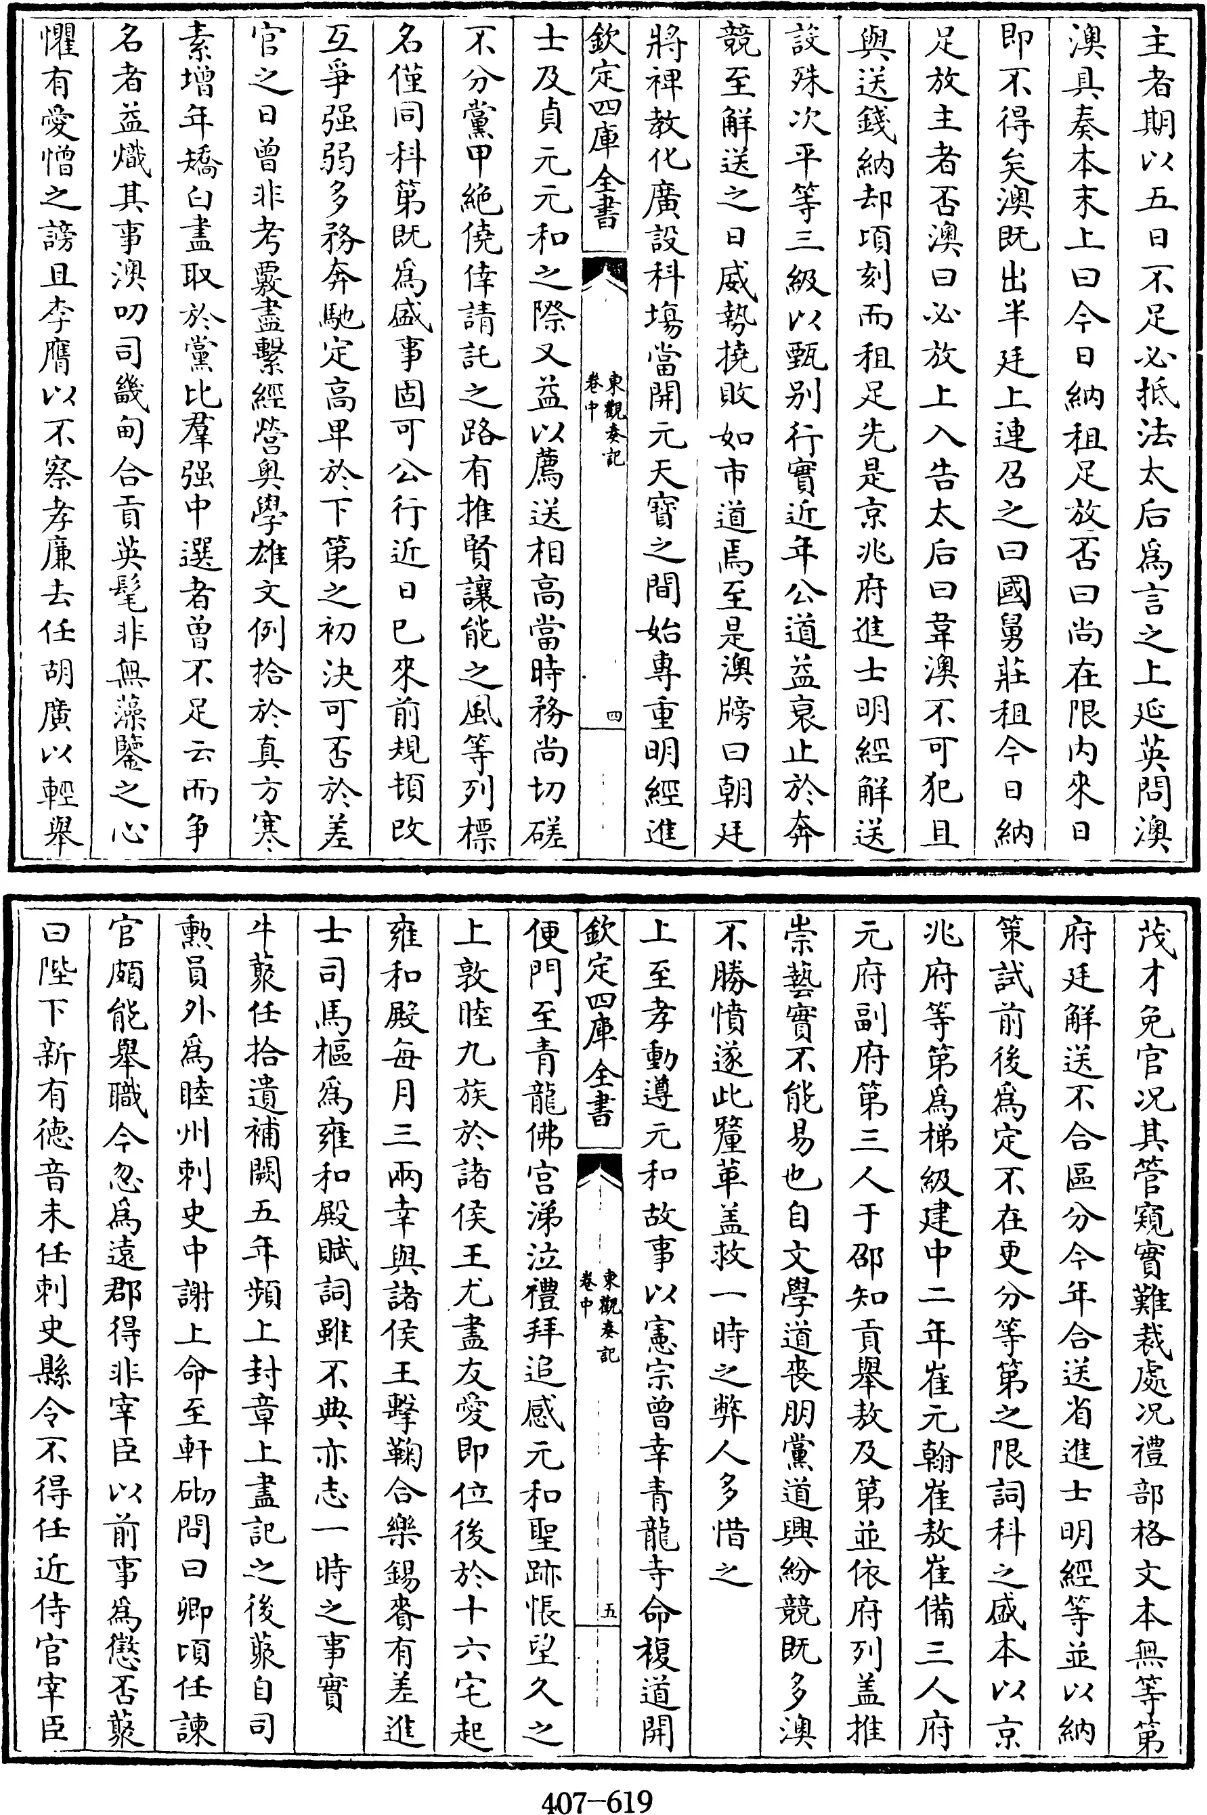 主者期以五日不足必抵法太后為言之上延英問澳
澳具奏本末上曰今日納租足放否曰尚在限內來日
即不得矣澳既出半廷上連召之曰國舅莊租今日納
足放主者否澳曰必放上入告太后曰韋澳不可犯且
與送錢納却頃刻而租足先是京兆府進士明經解送
設殊次平等三級以甄別行實近年公道益衰止於奔
競至解送之日威勢撓敗如市道焉至是澳牓曰朝廷
將裨教化廣設科塲當開元天寶之間始專重明經進
欽定四庫全書
東觀奏記
卷中
四
士及貞元元和之際又益以薦送相高當時務尚切磋
不分黨甲絶僥倖請託之路有推賢讓能之風等列標
名僅同科第既為盛事固可公行近日已來前規頓改
互爭强弱多務奔馳定高卑於下第之初決可否於差
官之日曾非考覈盡繫經營奧學雄文例拾於真方寒
素增年矯白盡取於黨比羣强中選者曾不足云而爭
名者益熾其事澳叨司畿甸合貢英髦非無藻鑒之心
懼有愛憎之謗且李膺以不察孝廉去任胡廣以輕舉
茂才免官况其管窺實難裁處况禮部格文本無等第
府廷解送不合區分今年合送省進士明經等並以納
策試前後為定不在更分等第之限詞科之盛本以京
兆府等第為梯級建中二年崔元翰崔敖崔備三人府
元府副府第三人于邵知貢舉敖及第並依府列蓋推
崇藝實不能易也自文學道喪朋黨道興紛競既多澳
不勝憤遂此釐革蓋救一時之弊人多惜之
上至孝動遵元和故事以憲宗曾幸青龍寺命複道開
欽定四庫全書
東觀奏記
卷中
五
便門至青龍佛宫涕泣禮拜追感元和聖跡悵望久之
上敦睦九族於諸侯王尤盡友愛即位後於十六宅起
雍和殿每月三兩幸與諸侯王擊鞠合樂錫賚有差進
士司馬樞為雍和殿賦詞雖不典亦志一時之事實
牛蘩任拾遺補闕五年頻上封章上盡記之後蘩自司
勲員外為睦州刺史中謝上命至軒砌問曰卿頃任諫
官頗能舉職今忽為遠郡得非宰臣以前事為懲否蘩
曰陛下新有德音未任刺史縣令不得任近侍官宰臣
407-619